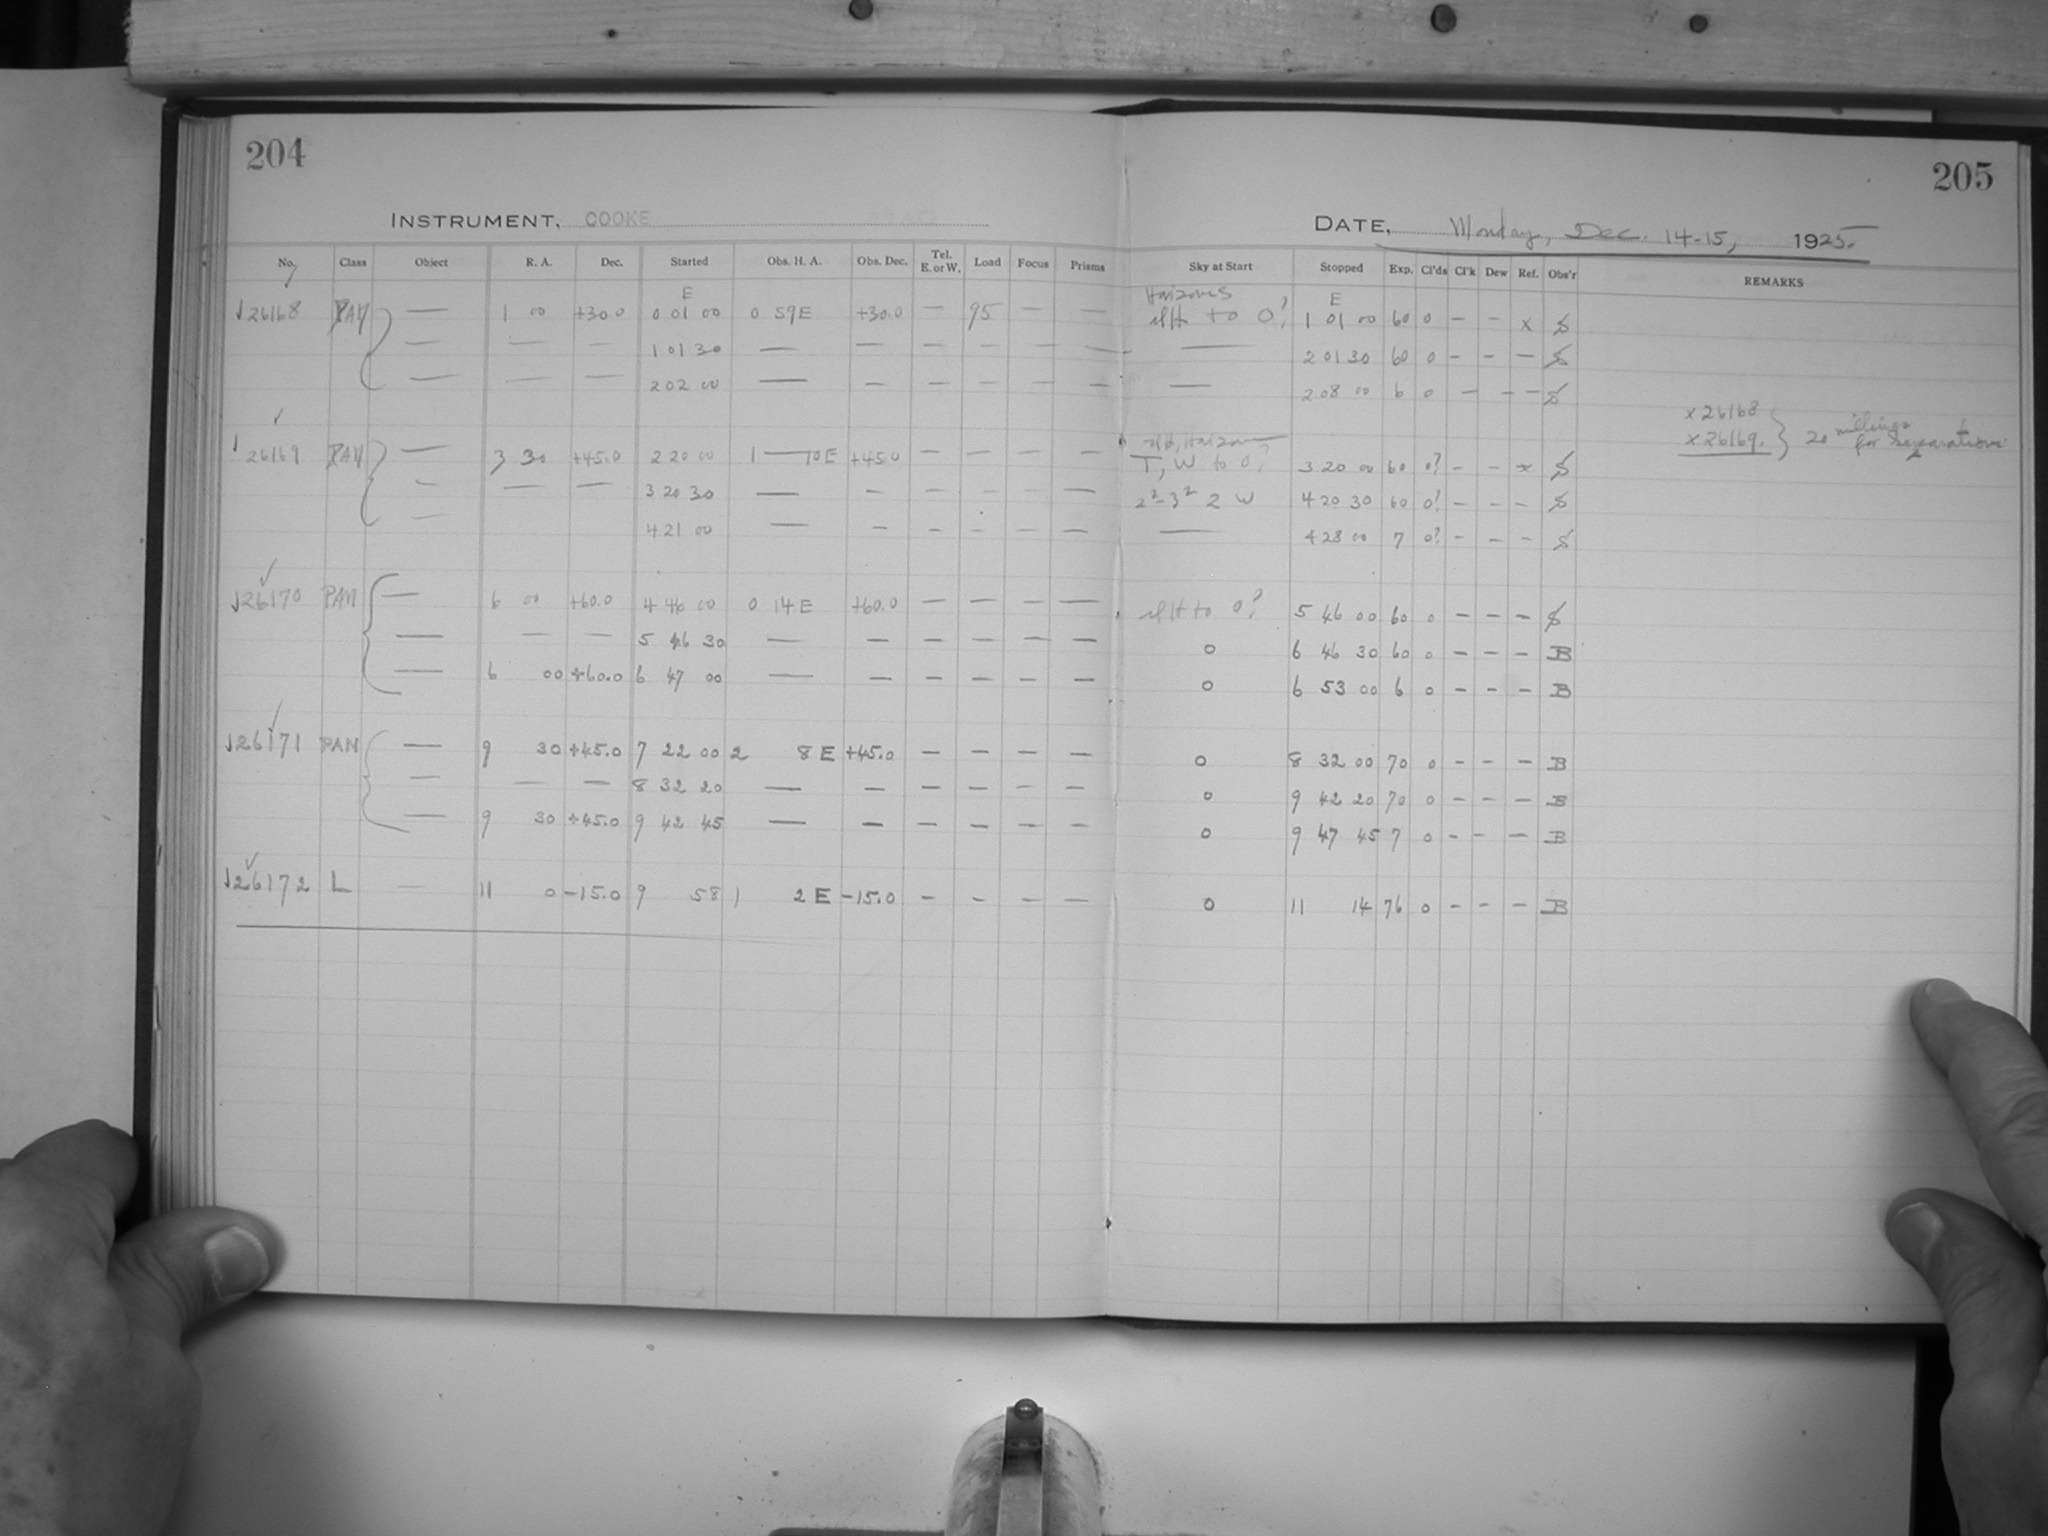 204
205
INSTRUMENT, COOKE
DATE, Monday, Dec. 14-15, 1925.
No. Class Object R. A. Dec. Started Obs. H. A. Obs. Dec. Tel. E. or W. Load Focus Prisms Sky at Start Stopped Exp. Cl'ds Cl'k Dew Ref. Obs'r REMARKS
E E
26168 PAN — 1 00 +30.0 0 01 00 0 59E +30.0 — 95 — — to 0? 1 01 00 60 0 – – x S
— — — 1 01 30 — — — — — — — 2 01 30 60 0 – – – S
— — — 2 02 00 — — — — — — — 2 08 00 6 0 – – – S
x 26168
x 26169. } 20 millings for separation
26169 PAN — 3 30 +45.0 2 20 00 1 — 10E +45.0 — — — — T, W to 0? 3 20 00 60 0? – – x S
— — — 3 20 30 — — — — — — 2²-3² 2 W 4 20 30 60 0? – – – S
— 4 21 00 — — — — — — — 4 28 00 7 0? – – – S
26170 PAN — 6 00 +60.0 4 46 00 0 14 E +60.0 — — — — to 0? 5 46 00 60 0 – – – S
— — — 5 46 30 — — — — — — 0 6 46 30 60 0 – – – B
— 6 00 +60.0 6 47 00 — — — — — — 0 6 53 00 6 0 – – – B
26171 PAN — 9 30 +45.0 7 22 00 2 8 E +45.0 — — — — 0 8 32 00 70 0 – – – B
— — — 8 32 20 — — — — — — 0 9 42 20 70 0 – – – B
— 9 30 +45.0 9 42 45 — — — — — — 0 9 47 45 7 0 – – – B
26172 L — 11 0 -15.0 9 58 1 2 E -15.0 – – – – 0 11 14 76 0 – – – B